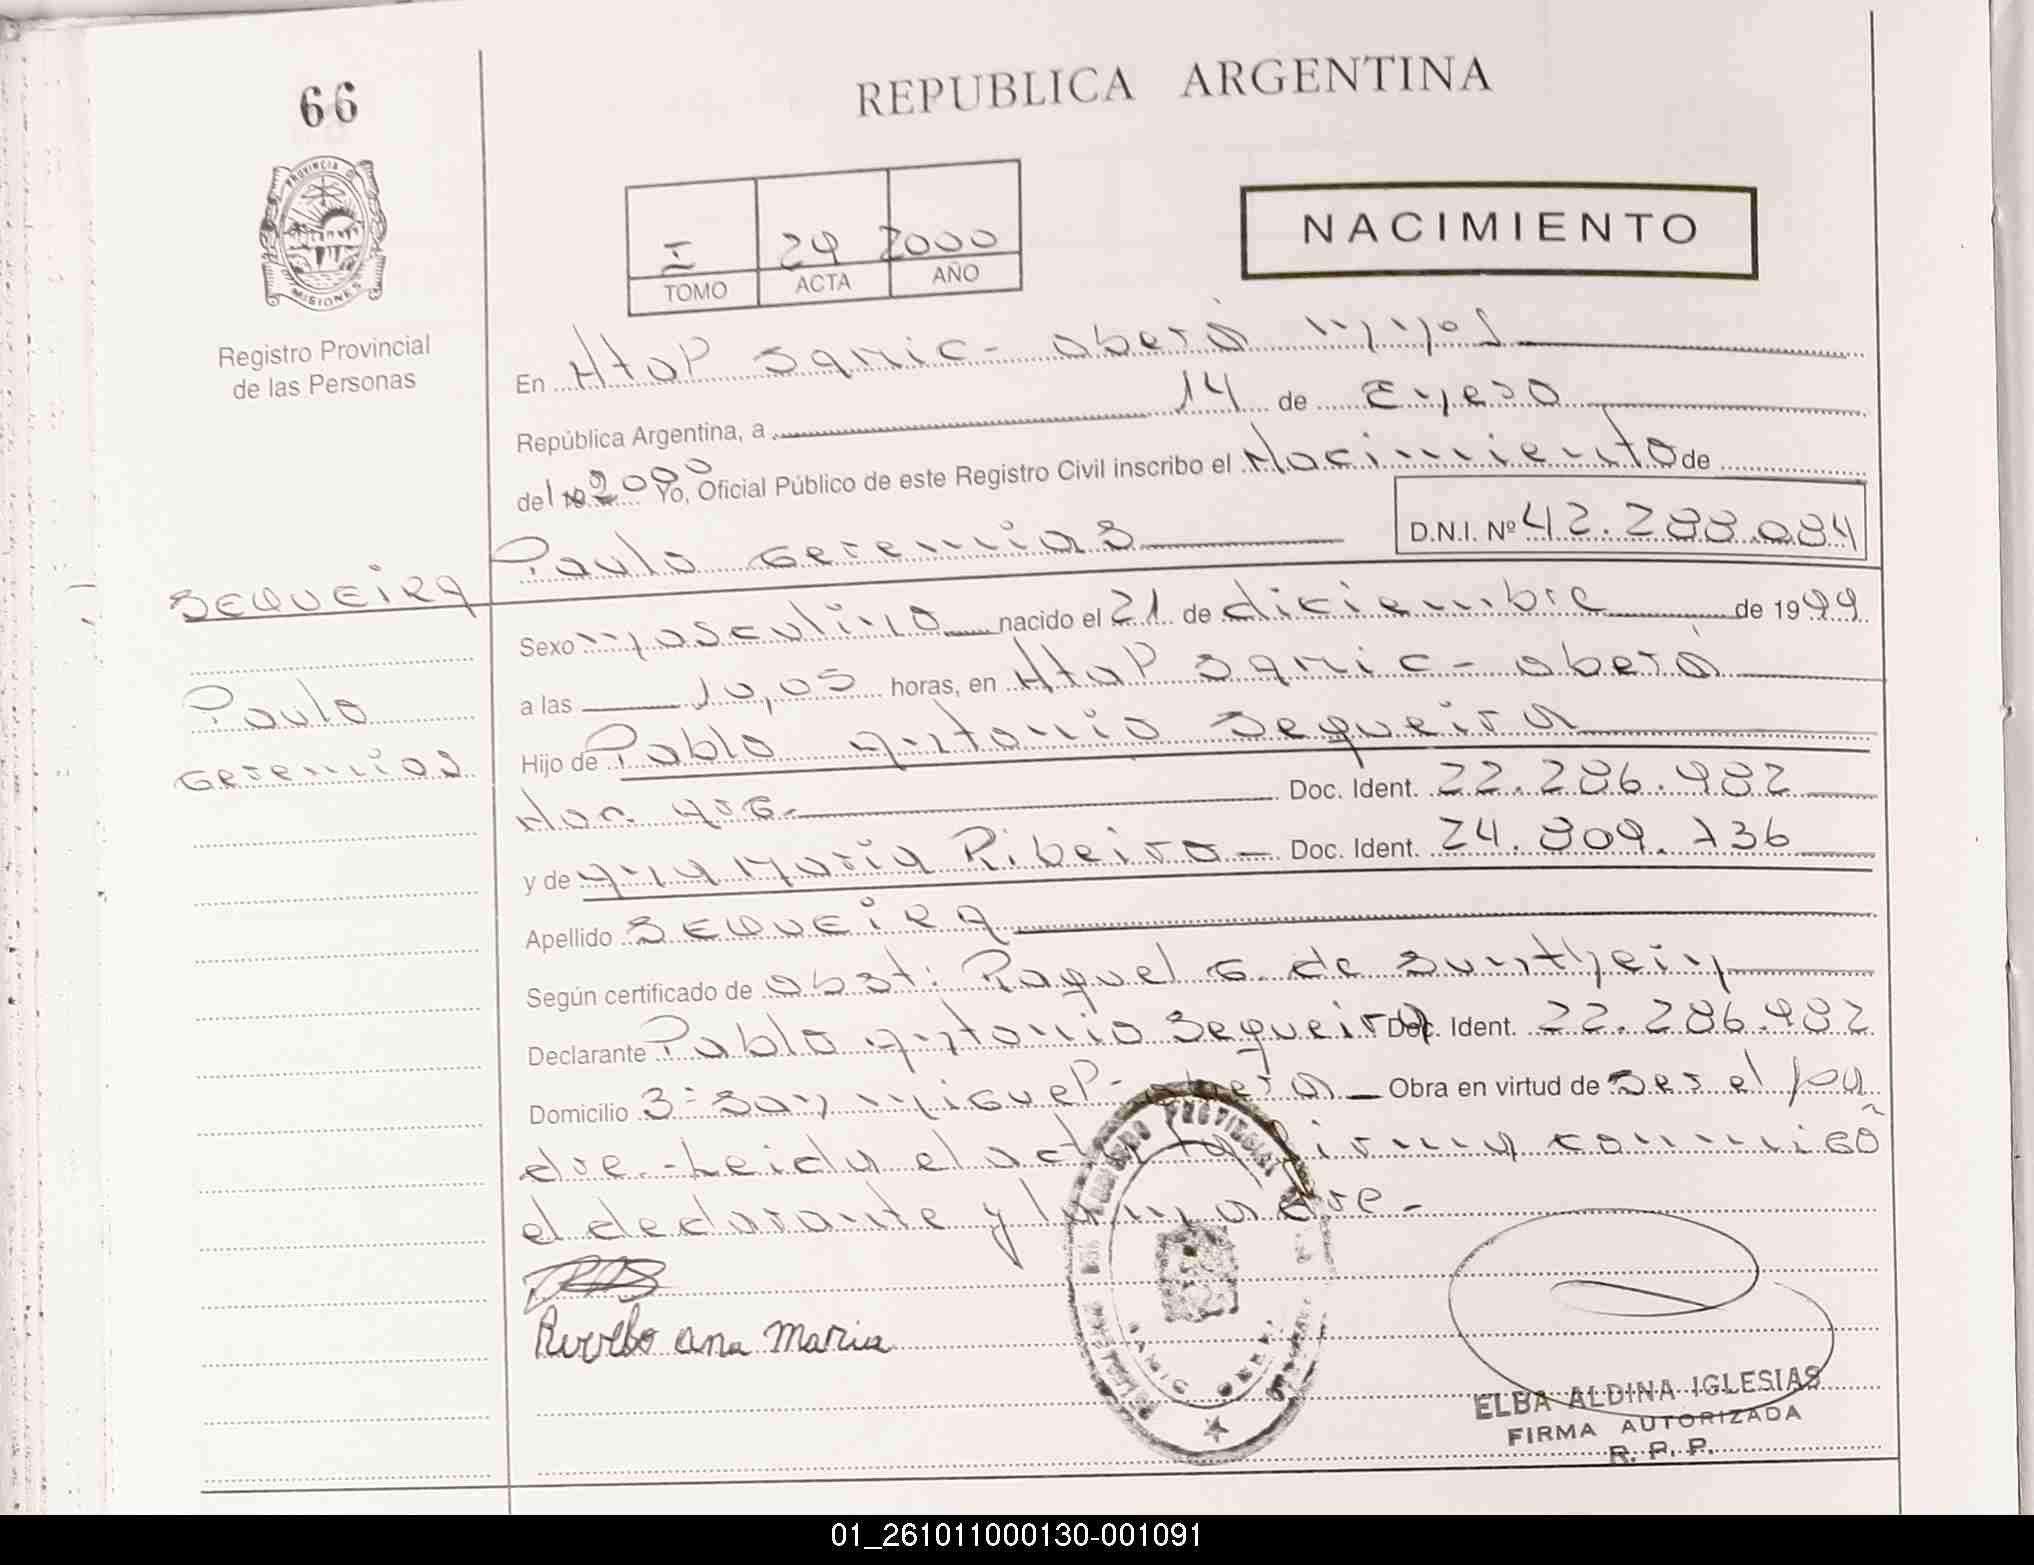 66
REPUBLICA ARGENTINA
PROVINCIA D
MISIONES
Registro Provincial
de las Personas
I 29 2000
TOMO ACTA AÑO
NACIMIENTO
En Htal Samic - oberá mnes
República Argentina, a 14 de Enero
del 2000 Yo, Oficial Público de este Registro Civil inscribo el Nacimiento de
Paulo Geremias D.N.I. Nº 42.288.084
SEQUEIRA
Paulo
Geremias
Sexo masculino nacido el 21 de diciembre de 1999
a las 10,05 horas, en Htal Samic - oberá
Hijo de Pablo Antonio Sequeira
Nac. Arg. Doc. Ident. 22.286.982
y de Ana Maria Ribeiro - Doc. Ident. 24.809.736
Apellido SEQUEIRA
Según certificado de obst: Raquel G. de Sunthein
Declarante Pablo Antonio Sequeira Doc. Ident. 22.286.982
Domicilio 3= San Miguel - oberá Obra en virtud de ser el pa
dre.- Leida el acta la firma conmigo
el declarante y la madre.-
Ana Maria
ELBA ALDINA IGLESIAS
FIRMA AUTORIZADA
R. P. P.
01_261011000130-001091